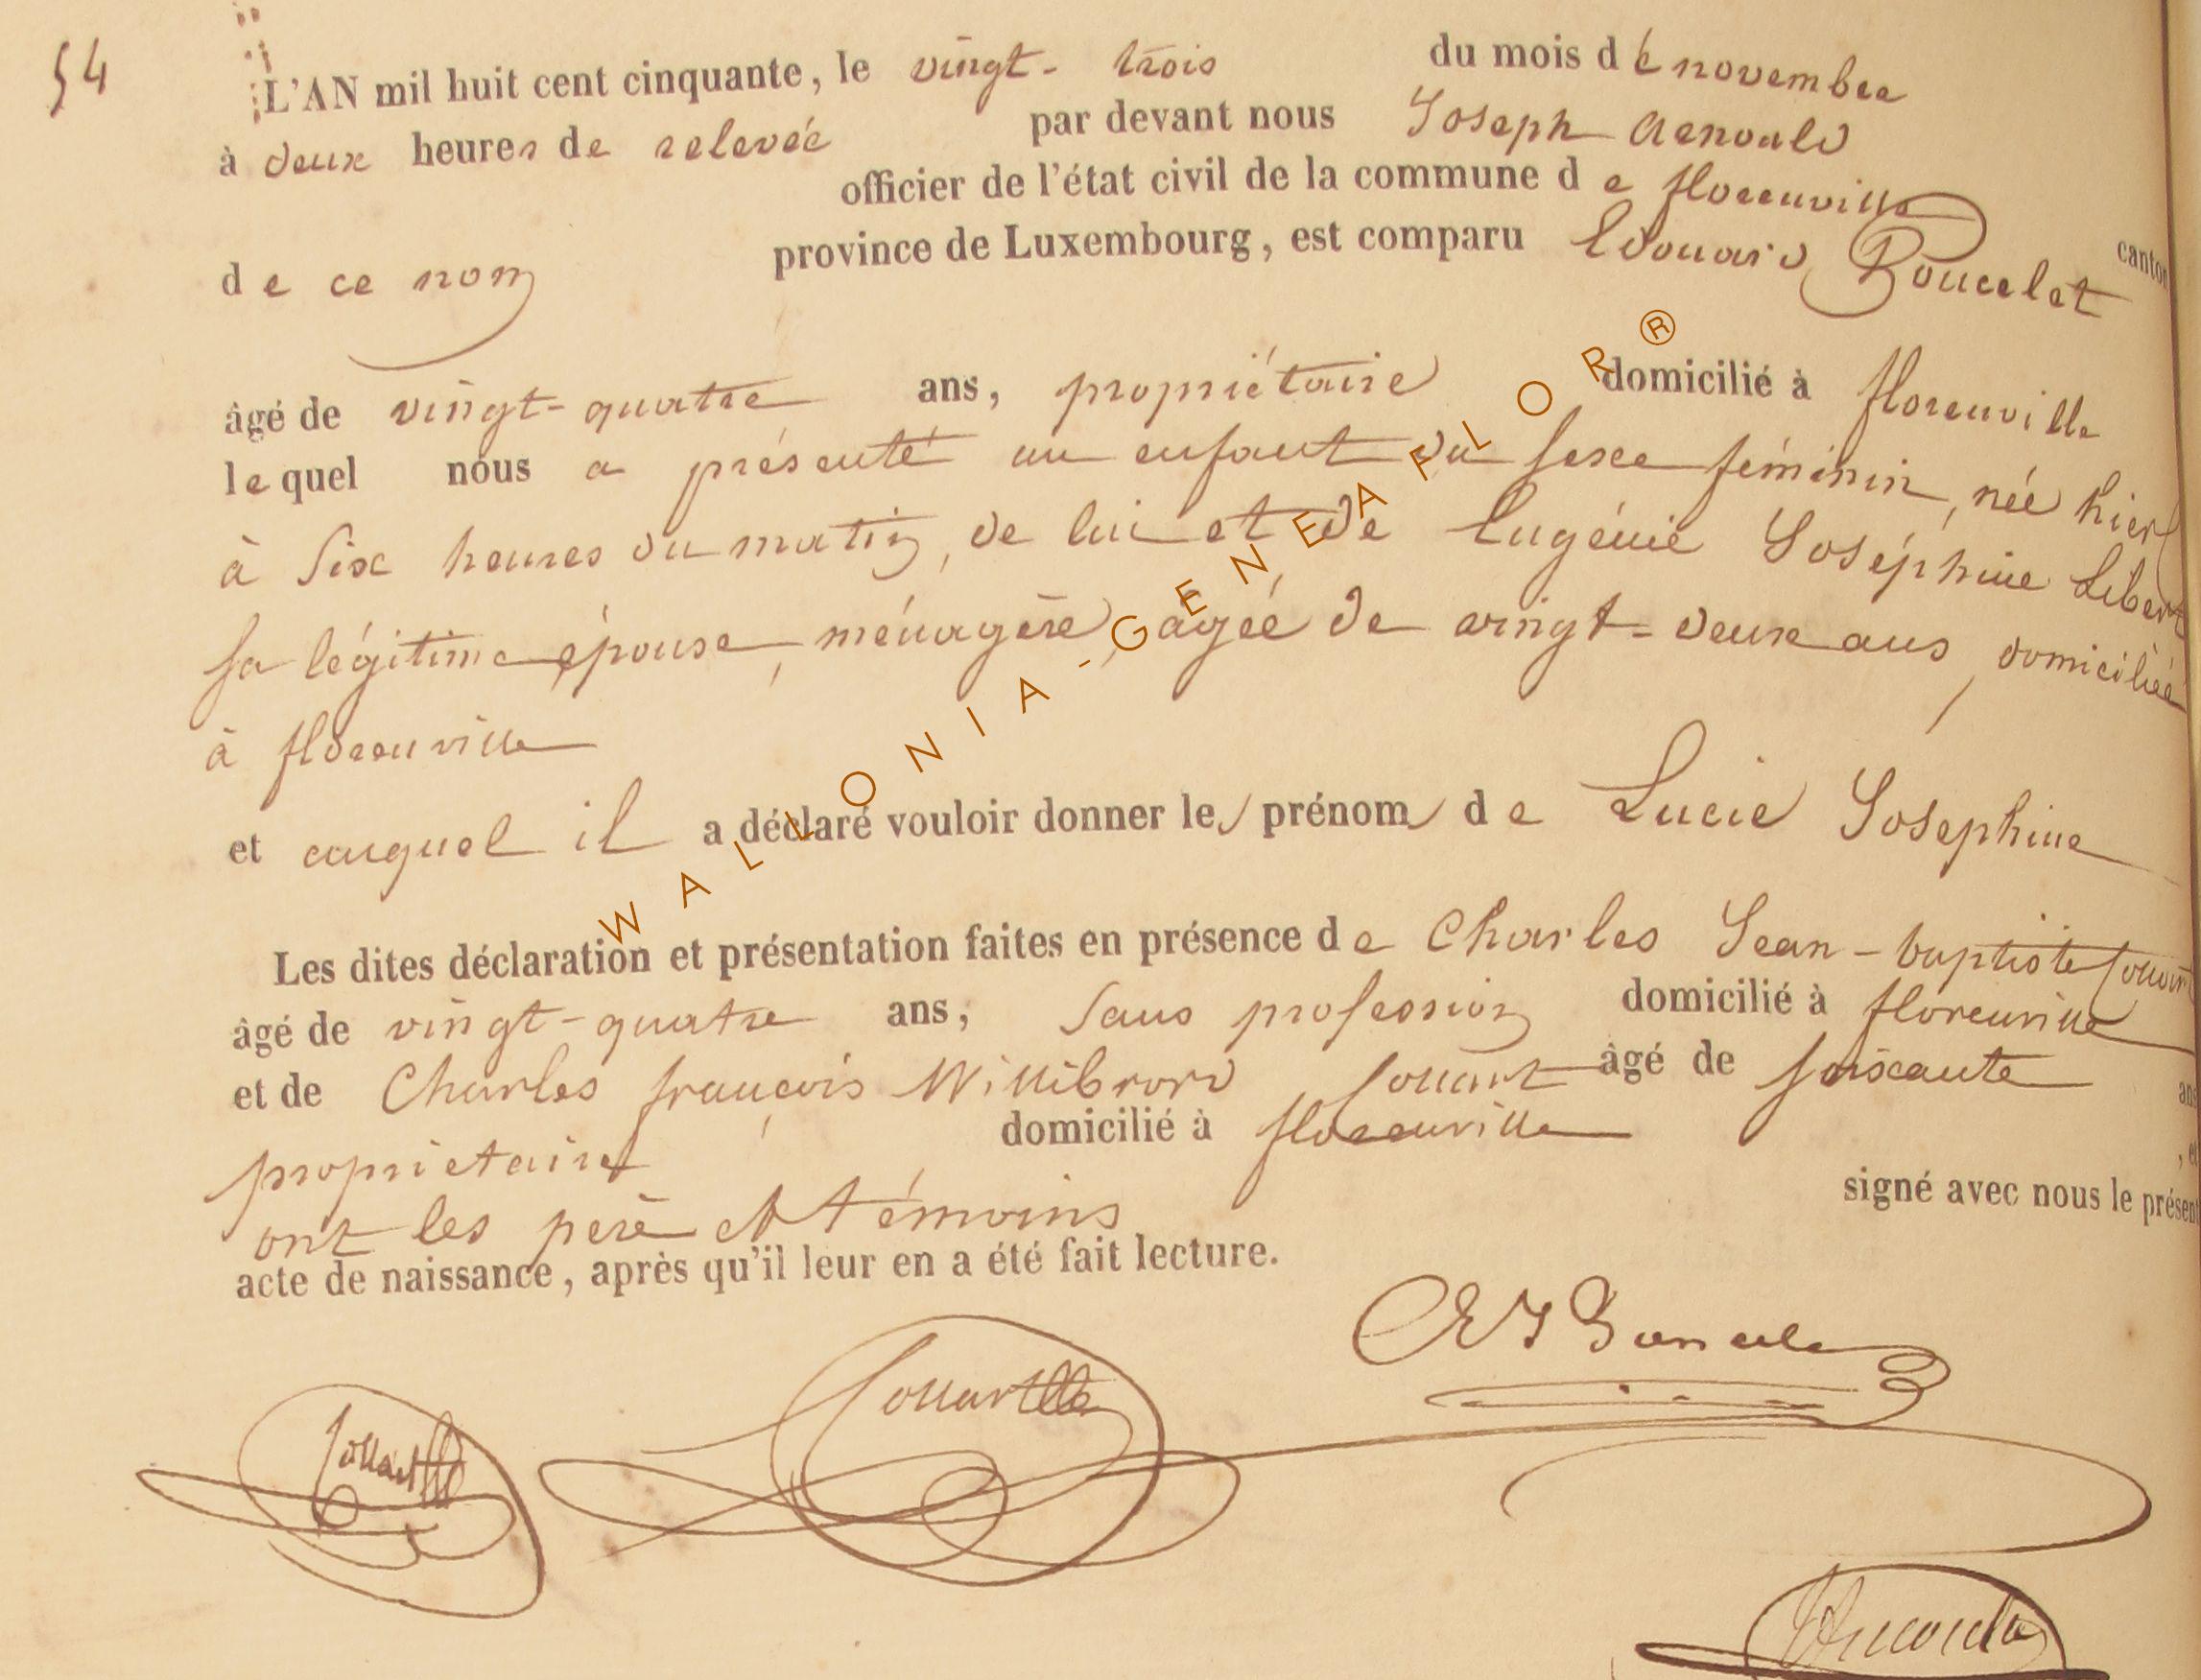 54
L'AN mil huit cent cinquante, le vingt-trois du mois de novembre
à deux heures de relevée par devant nous Joseph Arnould
officier de l'état civil de la commune de florenville canton
de ce nom province de Luxembourg, est comparu Edouard Poncelet
âgé de vingt-quatre ans, propriétaire domicilié à florenville
lequel nous a présenté un enfant du sexe féminin, née hier
à six heures du matin, de lui et de Eugénie Joséphine Libert
sa légitime épouse, ménagère, agée de vingt-deux ans, domiciliée
à florenville
et auquel il a déclaré vouloir donner les prénoms de Lucie Josephine
Les dites déclaration et présentation faites en présence de Charles Jean-baptiste
âgé de vingt-quatre ans, sans profession domicilié à florenville
et de Charles françois Willibrord âgé de soixante ans
propriétaire domicilié à florenville, et
ont les père et témoins signé avec nous le présent
acte de naissance, après qu'il leur en a été fait lecture.
WALLONIA-GENEAFLOR®